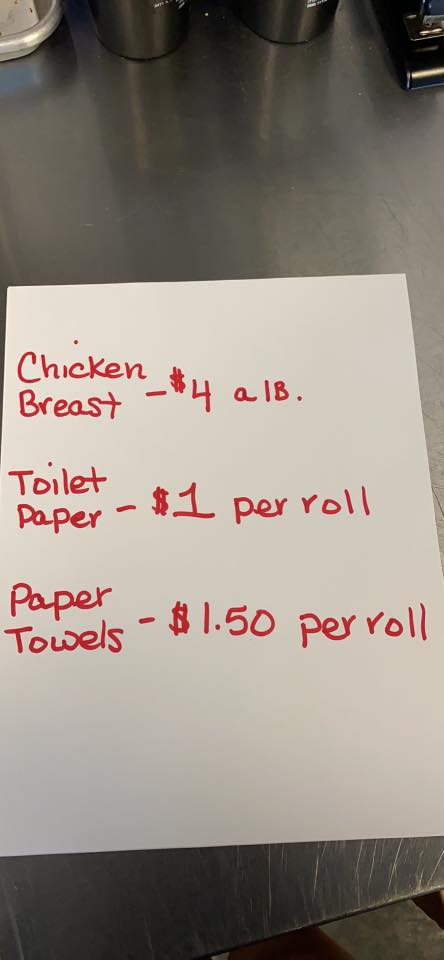 Chicken
Breast - $4 a lB.
Toilet
Paper - $1 per roll
Paper
Towels - $1.50 per roll